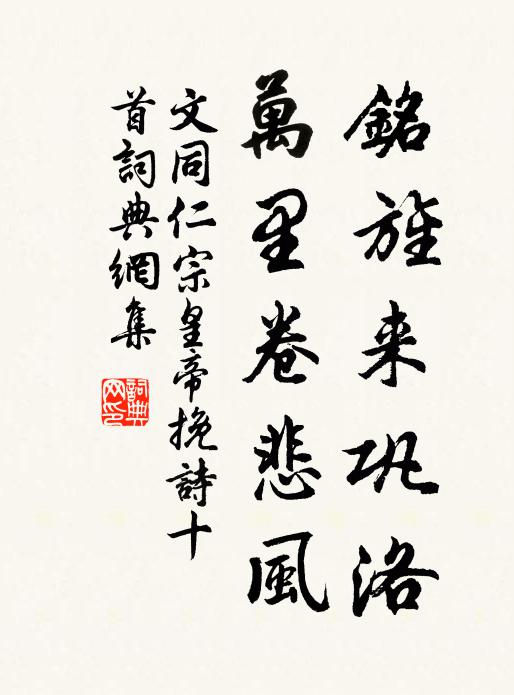 銘旌来巩洛
萬里卷悲風
文同仁宗皇帝挽詩十
首詞典網集
詞典网印